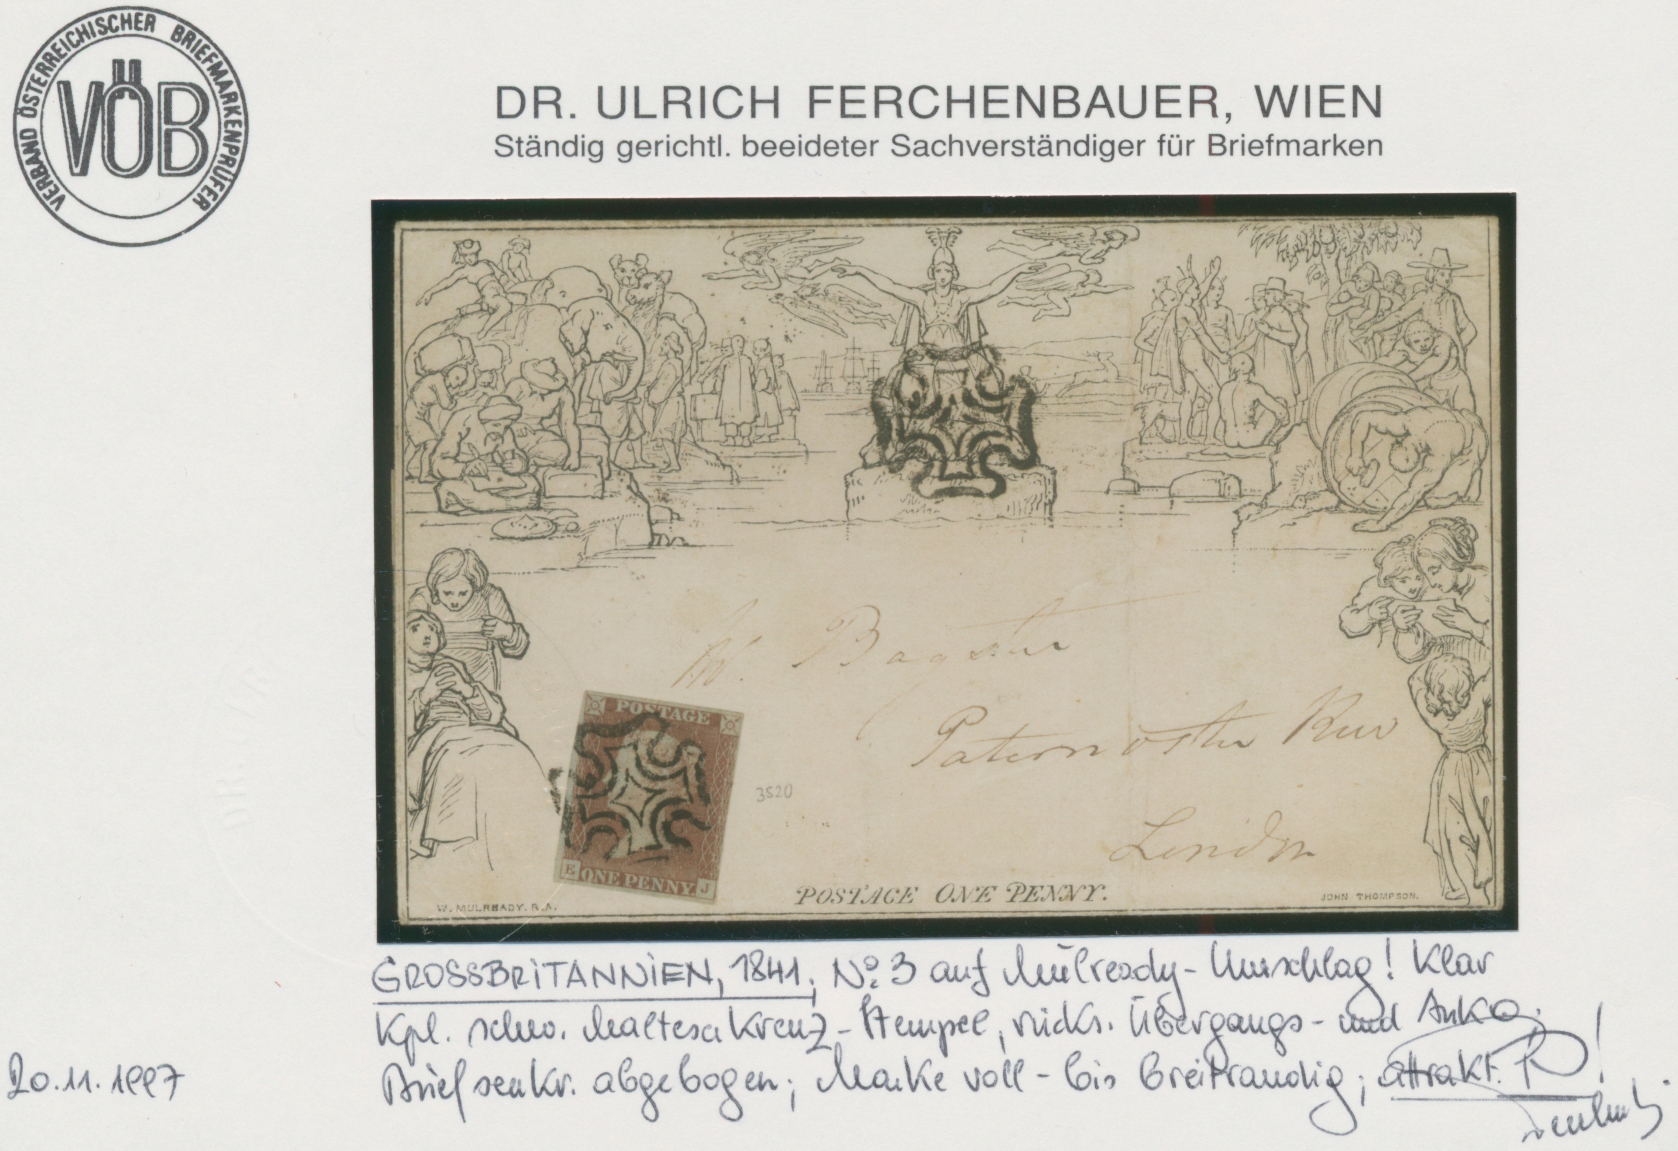 VERBAND ÖSTERREICHISCHER BRIEFMARKENPRÜFER
VÖB
DR. ULRICH FERCHENBAUER, WIEN
Ständig gerichtl. beeideter Sachverständiger für Briefmarken
Bagster
Paternoster Row
London
POSTAGE
3520
E ONE PENNY J
POSTAGE ONE PENNY.
W. MULREADY. R.A.
JOHN THOMPSON.
GROSSBRITANNIEN, 1841, No. 3 auf Mulready-Umschlag! Klar
kpl. schw. Malteserkreuz-Stempel, rücks. Übergangs- und Ank⊙.
Brief senkr. abgebogen; Marke voll- bis breitrandig; attrakt. R!
20.11.1997